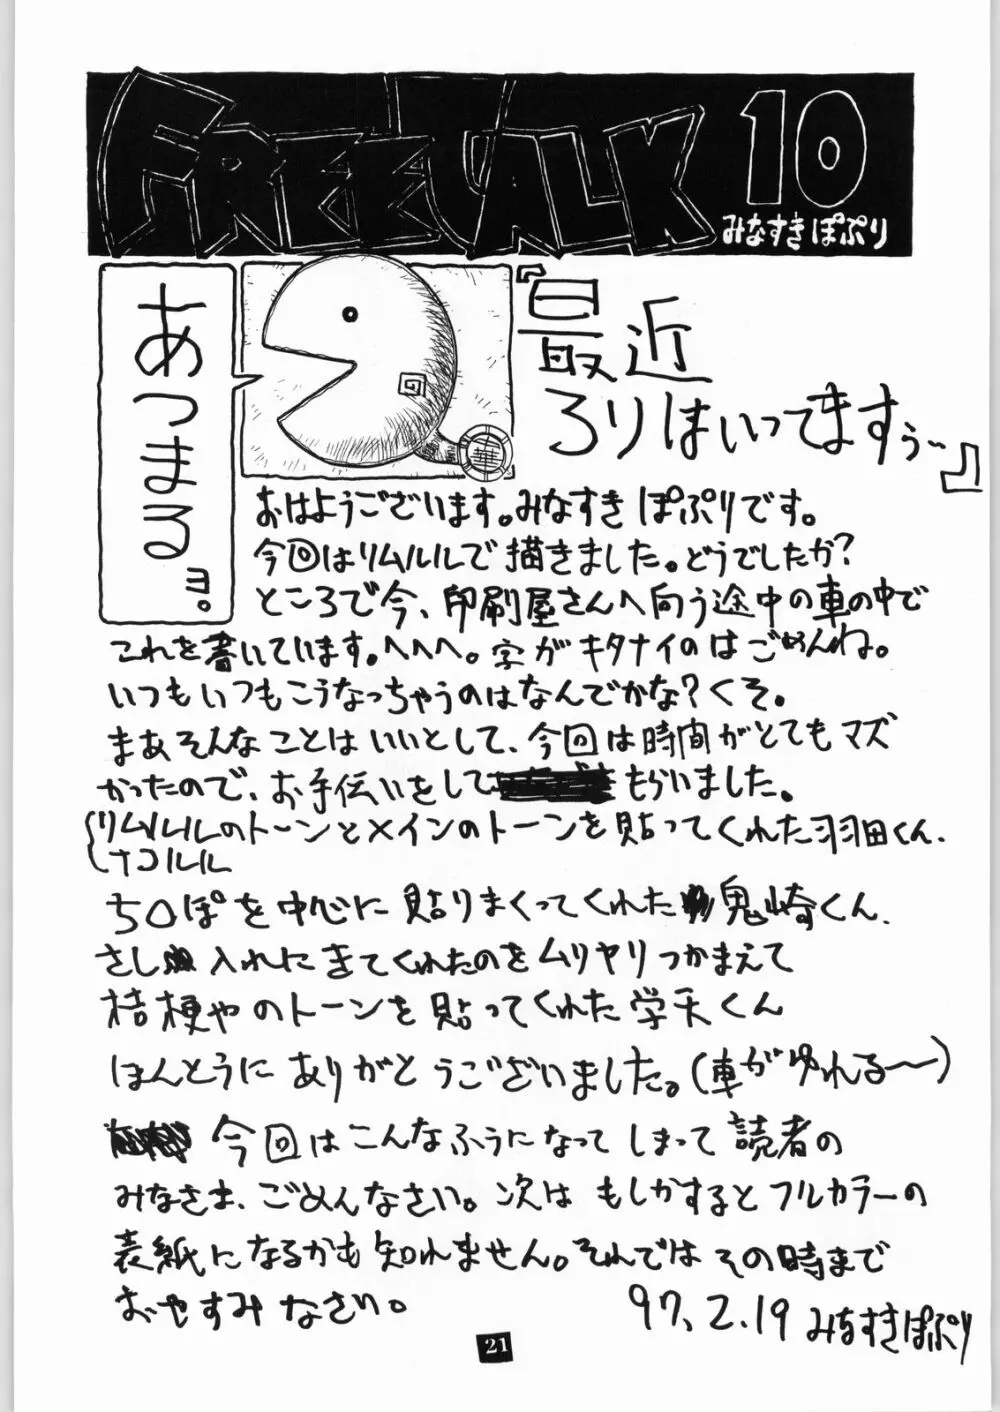 FREE TALK 10
みなすきぽぷり
あつまるョ。
回
華
『最近
ろりはいってますぅ〜』
おはようございます。みなすきぽぷりです。
今回はリムルルで描きました。どうでしたか?
ところで今、印刷屋さんへ向う途中の車の中で
これを書いています。へへへ。字がキタナイのはごめんね。
いつもいつもこうなっちゃうのはなんでかな?くそ。
まあそんなことはいいとして、今回は時間がとてもマズ
かったので、お手伝いをしてもらいました。
リムルルのトーンとメインのトーンを貼ってくれた羽田くん、
ナコルル
ち○ぽを中心に貼りまくってくれた鬼崎くん、
さし入れにきてくれたのをムリヤリつかまえて
桔梗やのトーンを貼ってくれた学天くん
ほんとうにありがとうございました。(車がゆれる〜)
今回はこんなふうになってしまって読者の
みなさま、ごめんなさい。次はもしかするとフルカラーの
表紙になるかも知れません。それではその時まで
おやすみなさい。
97.2.19 みなすきぽぷり
21